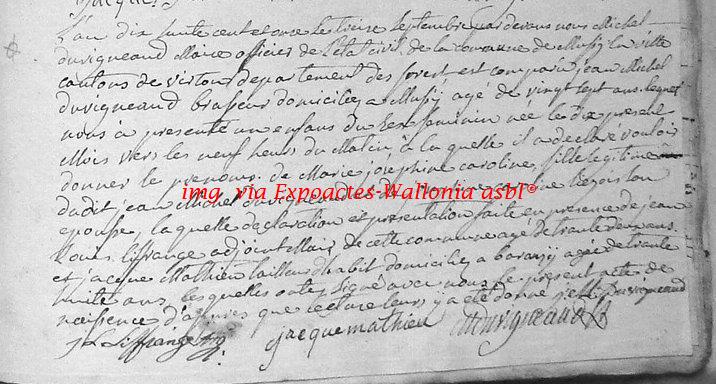 L'an dix huite cent et onse le treise septembre pardevans nous Michel
duvigneaud Maire officier de l'etat civil de la comune de Mussy la ville
cantons de virton departement des forest est comparu jean Michel
duvigneaud brasseur domicilié a Mussÿ agé de vingt sept ans lequel
nous à presenté un enfans du sexe feminin née le dix present
Mois vers les neuf heurs du Matin à la quelle il a declaré vouloir
donner le prenoms de Marie joséphine caroline, fille legitime
dudit jean Michel duvigneaud
img. via Expoactes-Wallonia asbl©
epouse, la quelle declaration et presentation faite en presence de jean
Louis Liffrange adjoint Maire de cette commune agé de trante deux ans
et jacque Mathieu tailleur d'habit domicilié a baranzÿ agée de trante
huite ans, les quelles onte signé avec nous le present acte de
naissence d'apres que lecture leurs y a eté donné j. M. Duvigneaud
Liffrange jacque mathieu Mduvigneaud